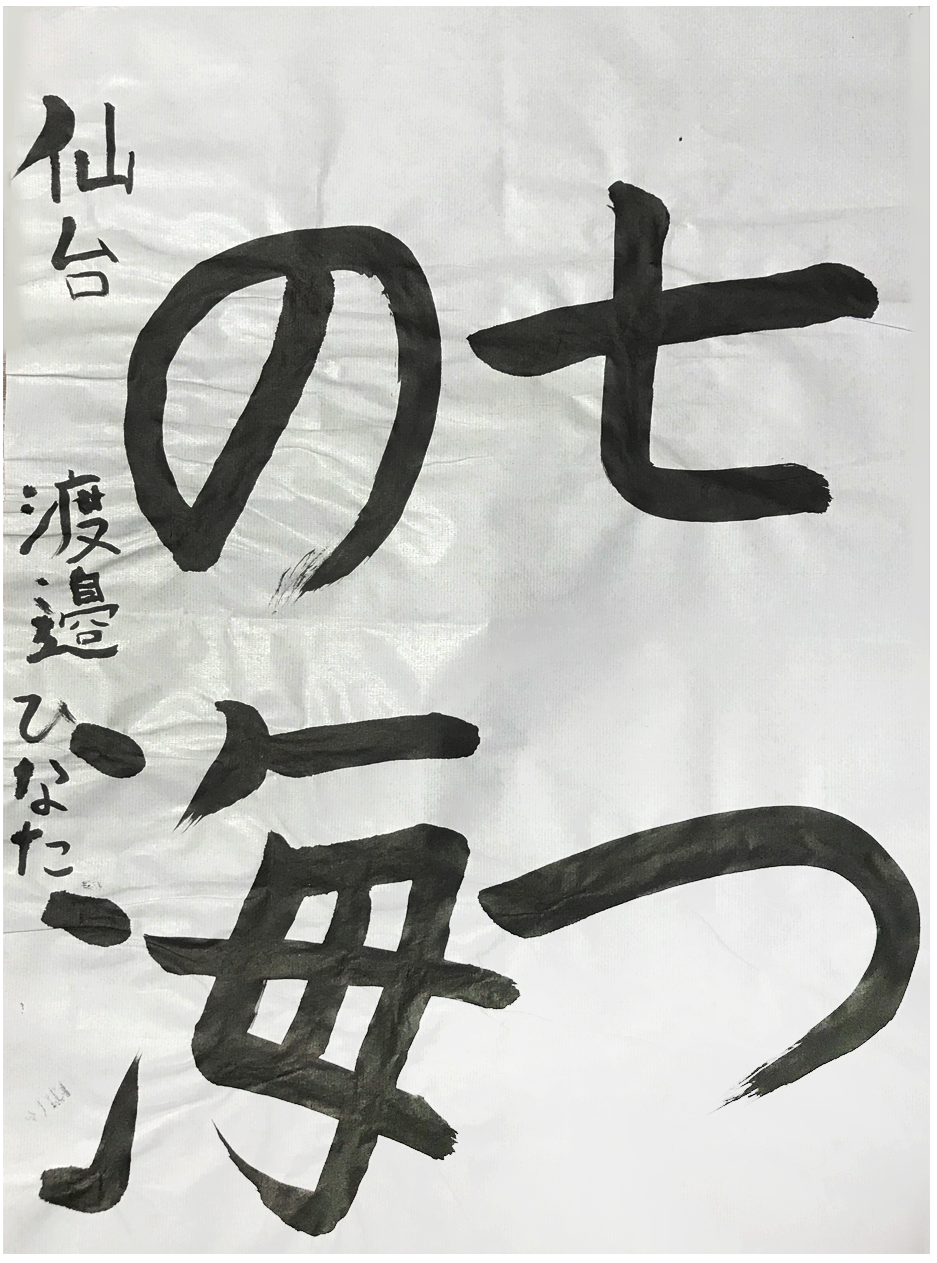 七つ
の海
仙台 渡邉ひなた